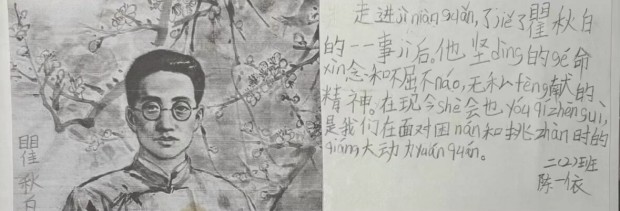 瞿秋白
走进jì niàn guǎn,了jiě了瞿秋白
的一一事jì后。他坚dìng的gé命
xìn念和不屈不náo,无私fèng献的
精神。在现今shè会也yóu qí zhēn guì,
是我们在面对困nán和挑zhàn时的
qiáng大动力yuán quán。
二(2)班
陈一依